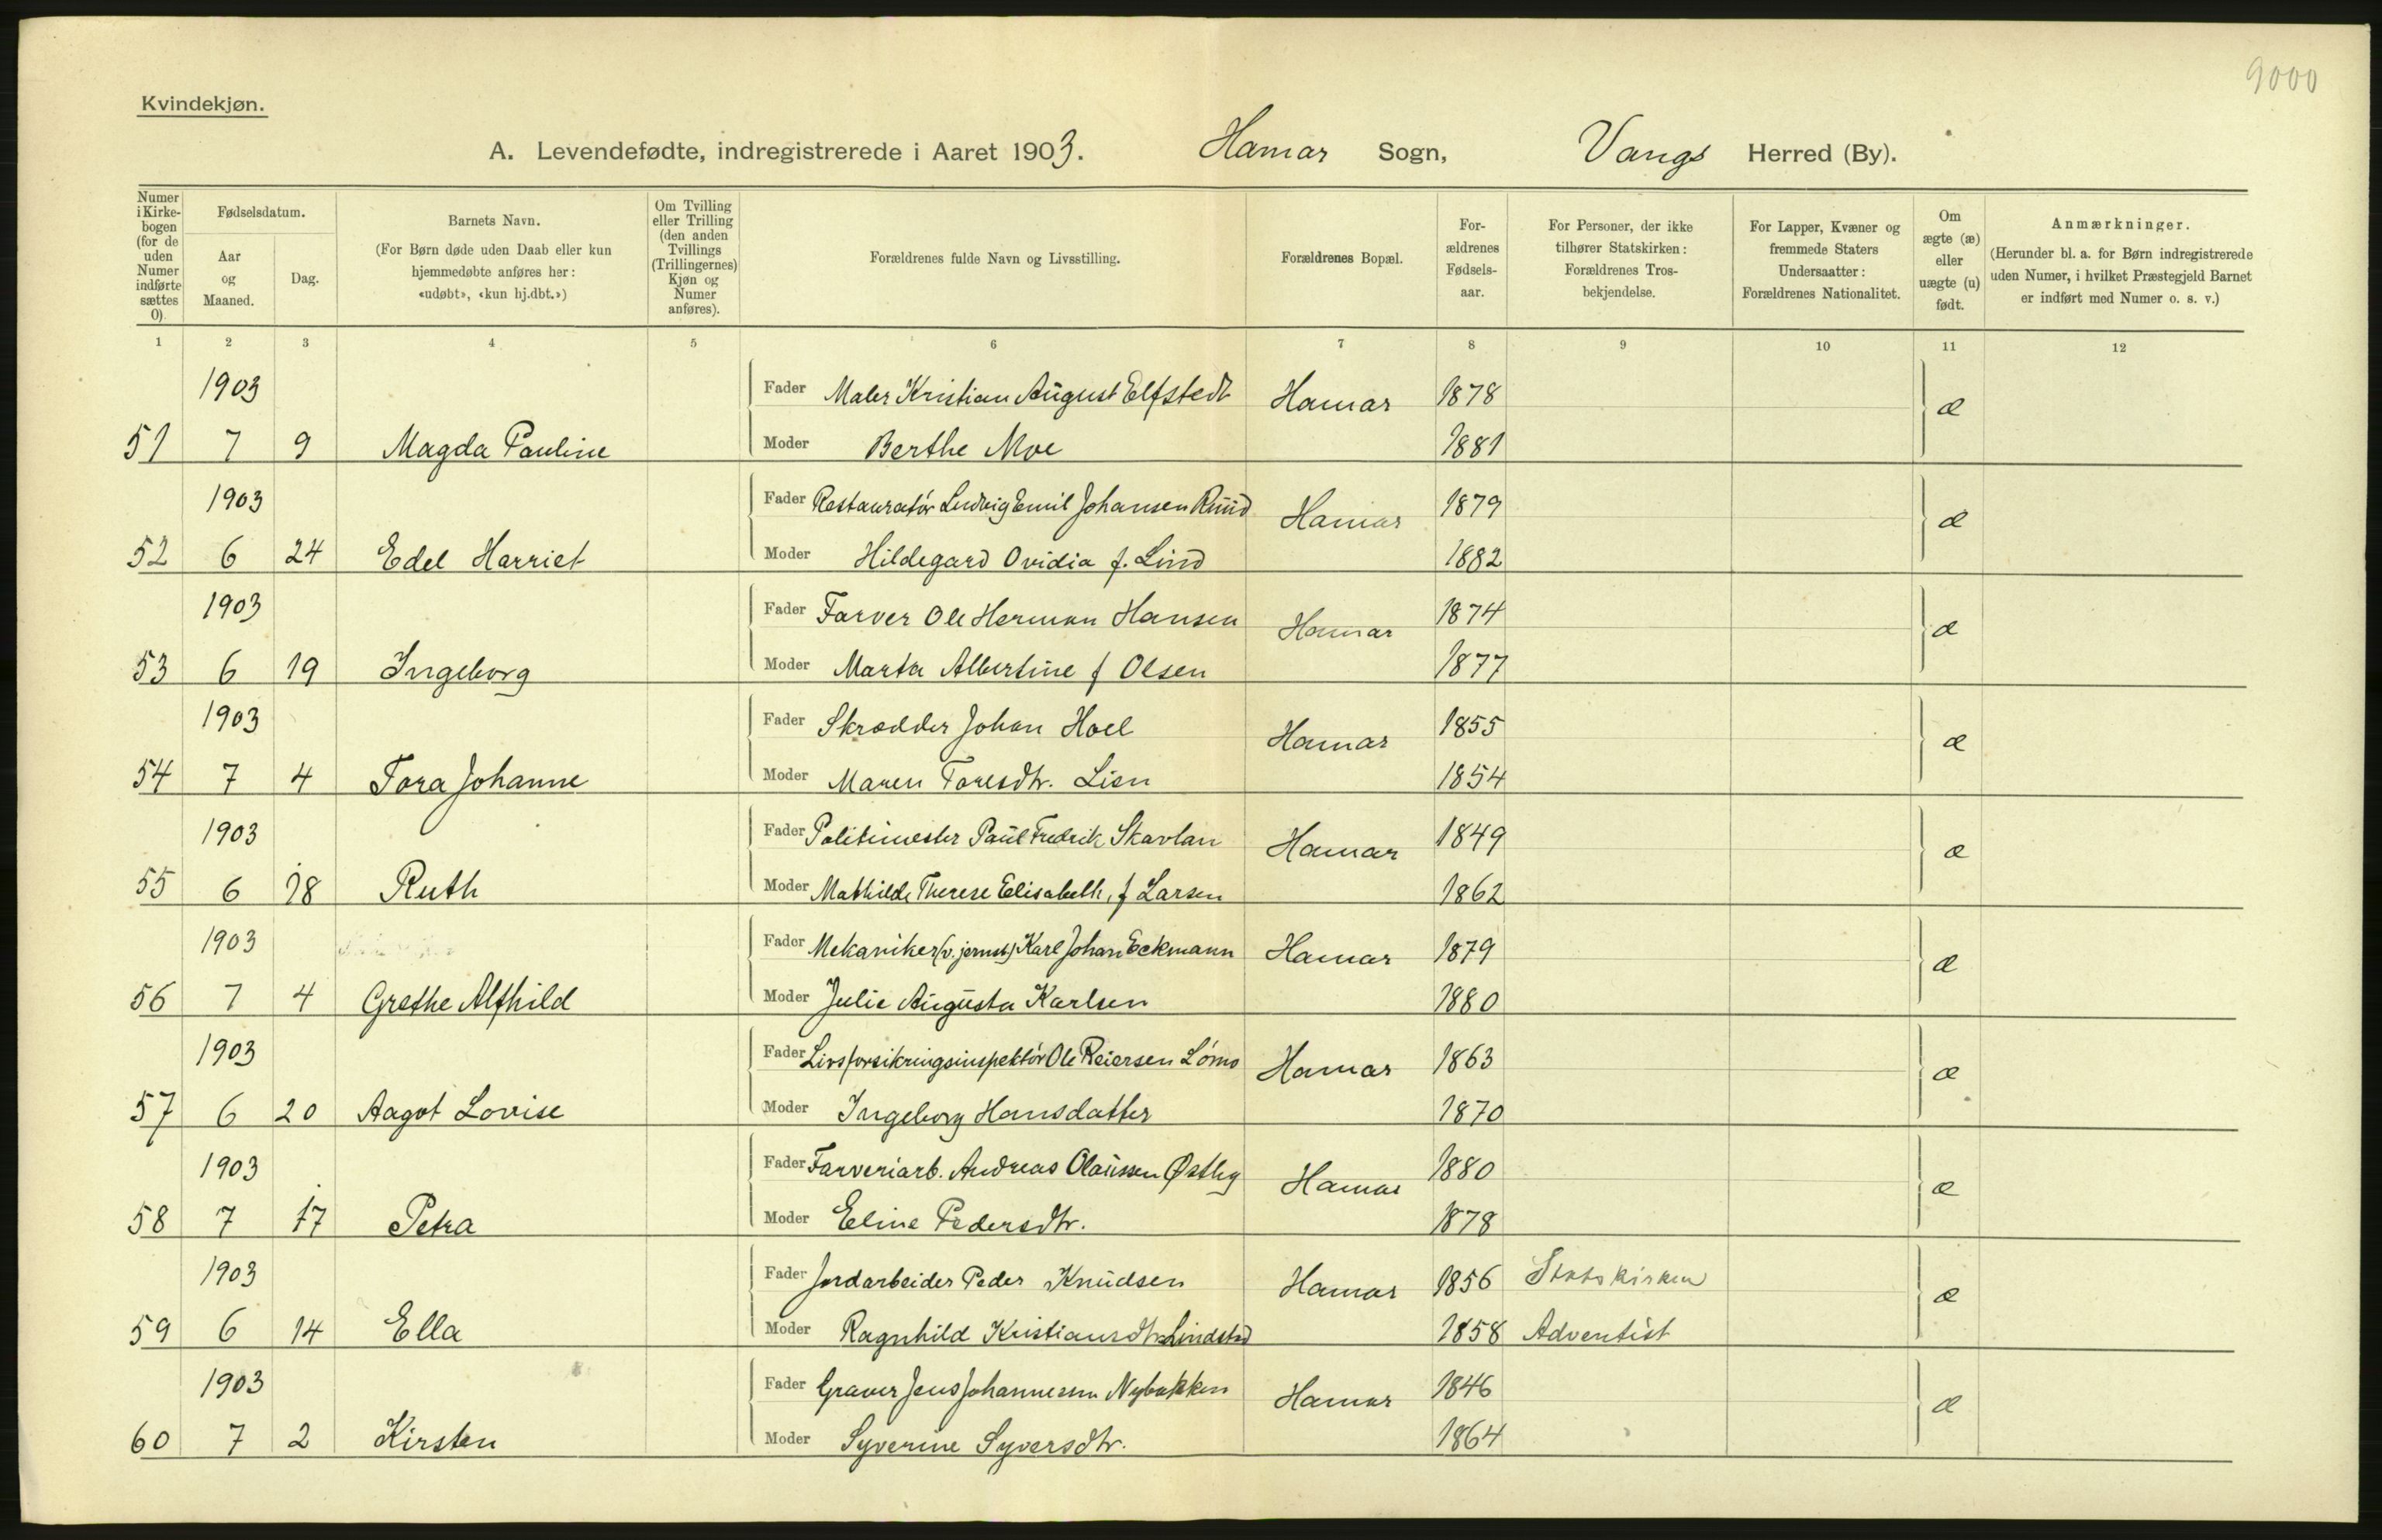 9000
Kvindekjøn.
A. Levendefødte, indregistrerede i Aaret 1903. Hamar Sogn, Vangs Herred (By).
Numer i Kirke-bogen (for de uden Numer indførte sættes 0).
Fødselsdatum.
Aar og Maaned.
Dag.
Barnets Navn.
(For Børn døde uden Daab eller kun hjemmedøbte anføres her: «udøbt», «kun hj.dbt.»)
Om Tvilling eller Trilling (den anden Tvillings (Trillingernes) Kjøn og Numer anføres).
Forældrenes fulde Navn og Livsstilling.
Forældrenes Bopæl.
For-ældrenes Fødsels-aar.
For Personer, der ikke tilhører Statskirken: Forældrenes Tros-bekjendelse.
For Lapper, Kvæner og fremmede Staters Undersaatter: Forældrenes Nationalitet.
Om ægte (æ) eller uægte (u) født.
Anmærkninger.
(Herunder bl. a. for Børn indregistrerede uden Numer, i hvilket Præstegjeld Barnet er indført med Numer o. s. v.)
1 2 3 4 5 6 7 8 9 10 11 12
1903 Fader Maler Kristian August Elfstedt Hamar 1878 æ
51 7 9 Magda Pauline Moder Berthe Moe 1881
1903 Fader Restauratör Ludvig Emil Johansen Ruud Hamar 1879 æ
52 6 24 Edel Harriet Moder Hildegard Ovidia f. Lind 1882
1903 Fader Farver Ole Herman Hansen Hamar 1874 æ
53 6 19 Ingeborg Moder Marta Albertine f Olsen 1877
1903 Fader Skrædder Johan Hoel Hamar 1855 æ
54 7 4 Tora Johanne Moder Maren Toresdtr. Lien 1854
1903 Fader Politimester Paul Fredrik Skavlan Hamar 1849 æ
55 6 18 Ruth Moder Mathilde Therese Elisabeth, f Larsen 1862
1903 Fader Mekaniker (v. jernst) Karl Johan Eckmann Hamar 1879 æ
56 7 4 Grethe Alfhild Moder Julie Augusta Karlsen 1880
1903 Fader Livsforsikringsinspektör Ole Reiersen Lömo Hamar 1863 æ
57 6 20 Aagot Lovise Moder Ingeborg Hansdatter 1870
1903 Fader Farveriarb. Andreas Olaussen Østby Hamar 1880 æ
58 7 17 Petra Moder Eline Pedersdtr. 1878
1903 Fader Jordarbeider Peder Knudsen Hamar 1856 Statskirken æ
59 6 14 Ella Moder Ragnhild Kristiansdtr Lindstad 1858 Adventist
1903 Fader Graver Jens Johannessen Nybakken Hamar 1846 æ
60 7 2 Kirsten Moder Syverine Syversdtr. 1864